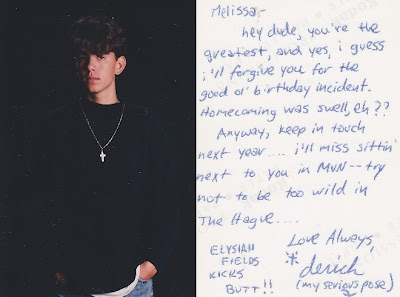 Melissa-
hey dude, you're the
greatest, and yes, i guess
i'll forgive you for the
good ol' birthday incident.
Homecoming was swell, eh??
Anyway, keep in touch
next year.... i'll miss sittin'
next to you in MUN--try
not to be too wild in
The Hague....
Love Always,
derich
(my serious pose)
ELYSIAN
FIELDS
KICKS
BUTT!!